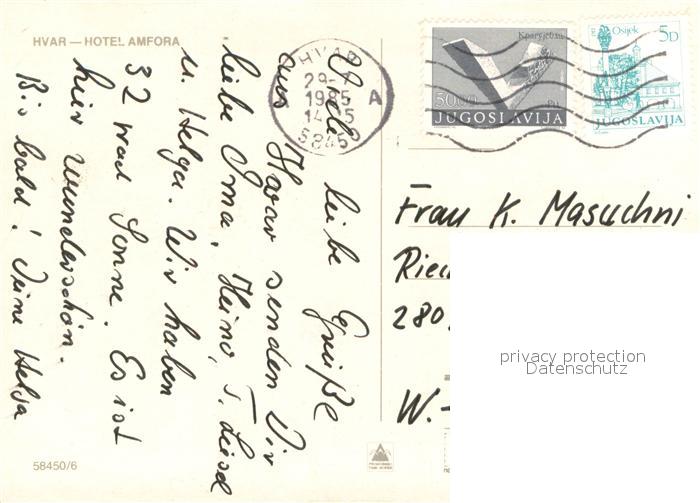 HVAR — HOTEL AMFORA
HVAR
29-
1985 A
14-15
58450
Крагујевац
50.00
JUGOSLAVIJA
Osijek
5D
JUGOSLAVIJA
Viele liebe Grüße
aus Hvar senden Dir
liebe Oma, Heino, T. Liesel
u. Helga. Wir haben
32 Grad Sonne. Es ist
hier wunderschön.
Bis bald! Deine Helga
Frau K. Masuchni
280
W.-
privacy protection
Datenschutz
58450/6